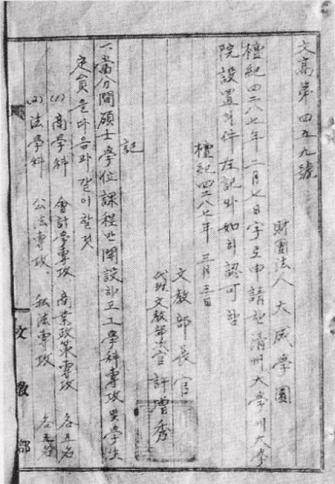 文高第四五九號
財團法人 大成學園
檀紀四二八七年 二月七日字로申請한 淸州大學에大學
院設置의件左記와如히認可함
檀紀四二八七年 三月三日
文敎部長官
代理文敎部次官 許增秀
記
一、當分間碩士學位課程만開設하고 各學科專攻및學生
定員을다음과같이할것
(1) 商學科 會計學專攻 商業政策專攻 各五名
(2) 法學科 公法專攻、私法專攻 各五名
文敎部